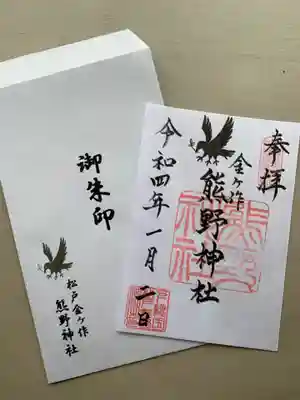 御朱印
松戸金ヶ作
熊野神社
奉拝
金ヶ作
熊野神社
令和四年一月二日